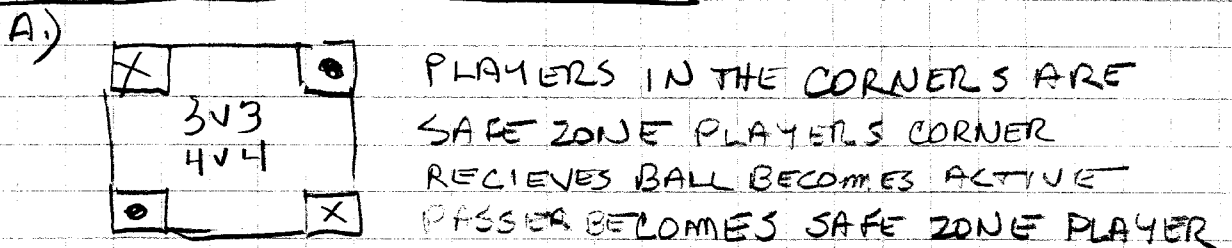 A.)
X
PLAYERS IN THE CORNERS ARE
3V3
SAFE ZONE PLAYERS CORNER
4V4
RECIEVES BALL BECOMES ACTIVE
X
PASSER BECOMES SAFE ZONE PLAYER